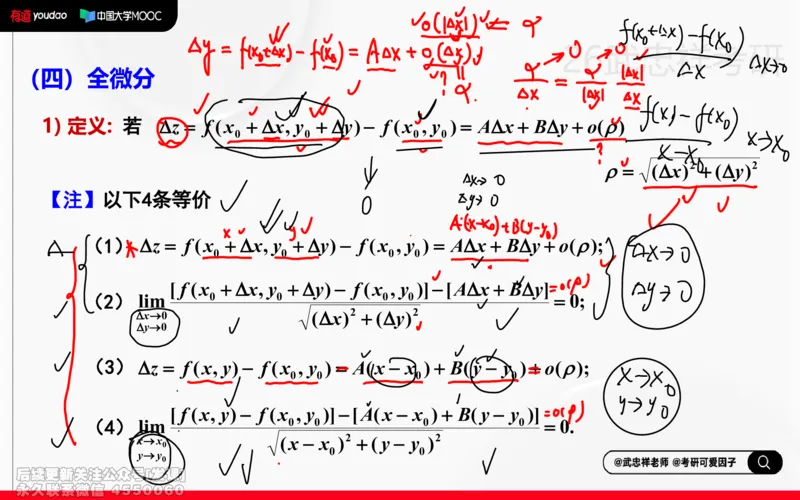 有道 youdao 中国大学MOOC
Δy = f(x₀+Δx) − f(x₀) = AΔx + o(Δx)
o(|Δx|) = α
α/Δx = α/|Δx| |Δx|/Δx
f(x₀+Δx) − f(x₀)
Δx Δx→0
(四) 全微分
f(x) − f(x₀)
x − x₀ x→x₀
1) 定义: 若 Δz = f(x₀ + Δx, y₀ + Δy) − f(x₀, y₀) = AΔx + BΔy + o(ρ)
?
ρ = √((Δx)² + (Δy)²)
【注】以下4条等价
0
Δx→0
Δy→0
A·(x−x₀)+B(y−y₀)
x y
(1) Δz = f(x₀ + Δx, y₀ + Δy) − f(x₀, y₀) = AΔx + BΔy + o(ρ);
Δx→0
Δy→0
(2) lim Δx→0 Δy→0 [f(x₀ + Δx, y₀ + Δy) − f(x₀, y₀)] − [AΔx + BΔy] / √((Δx)² + (Δy)²) = 0;
=o(ρ)
(3) Δz = f(x, y) − f(x₀, y₀) = A(x − x₀) + B(y − y₀) + o(ρ);
x→x₀
y→y₀
(4) lim x→x₀ y→y₀ [f(x, y) − f(x₀, y₀)] − [A(x − x₀) + B(y − y₀)] / √((x − x₀)² + (y − y₀)²) = 0.
=o(ρ)
@武忠祥老师 @考研可爱因子
永久联系微信 4550060